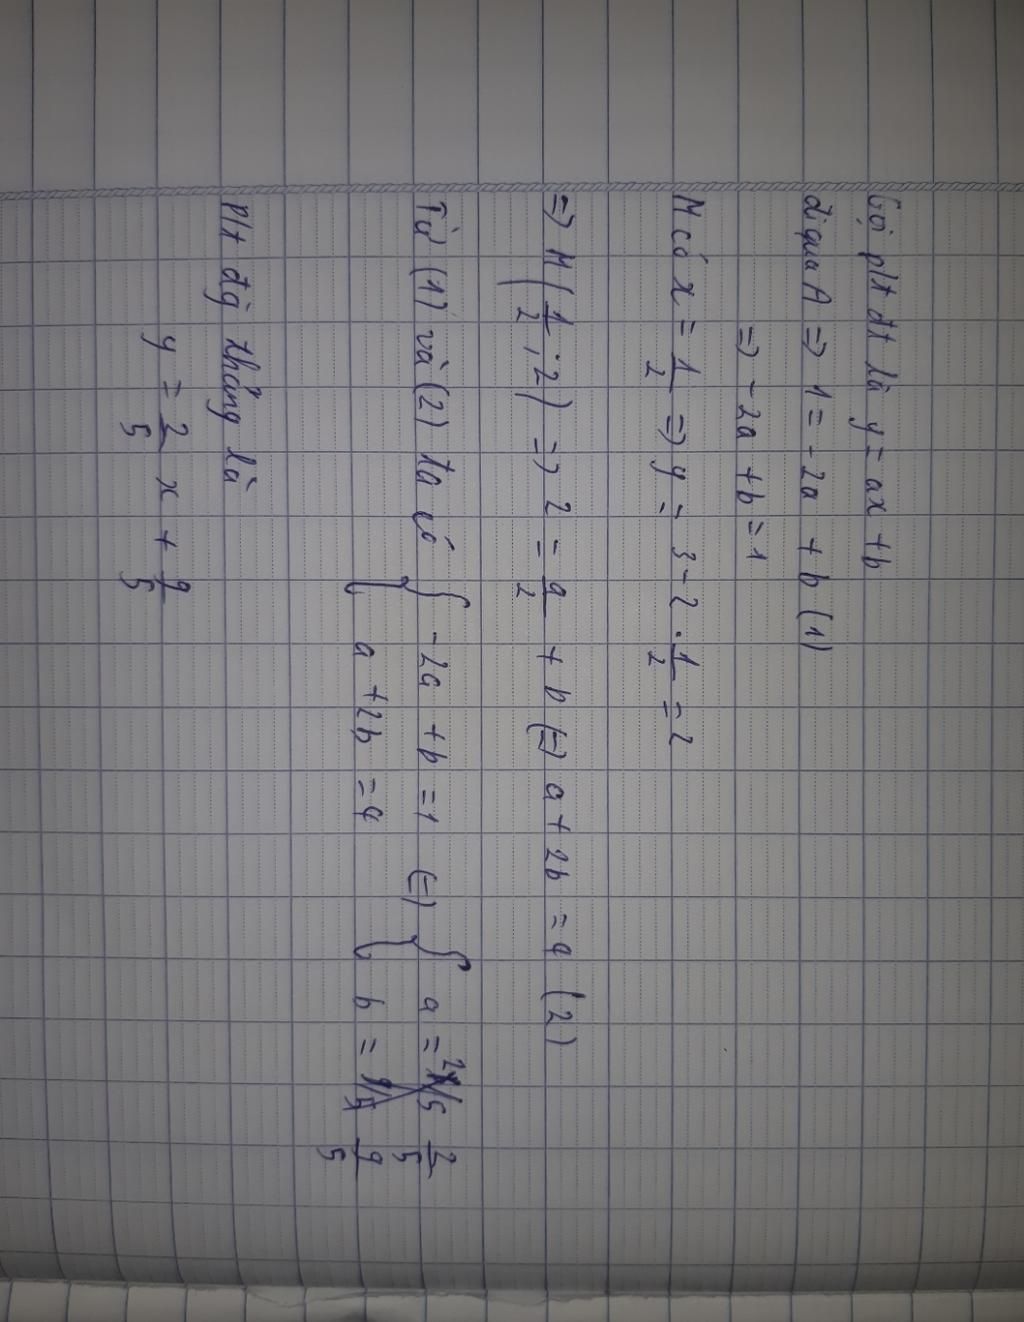 Gọi ptđt là y = ax + b
đi qua A => 1 = -2a + b (1)
=> -2a + b = 1
M có x = 1/2 => y = 3 - 2 . 1/2 = 2
=> M (1/2 ; 2) => 2 = a/2 + b (=) a + 2b = 4 (2)
Từ (1) và (2) ta có { -2a + b = 1 (=) { a = 2/5
a + 2b = 4 b = 9/5
Ptt đg thẳng là
y = 2/5 x + 9/5